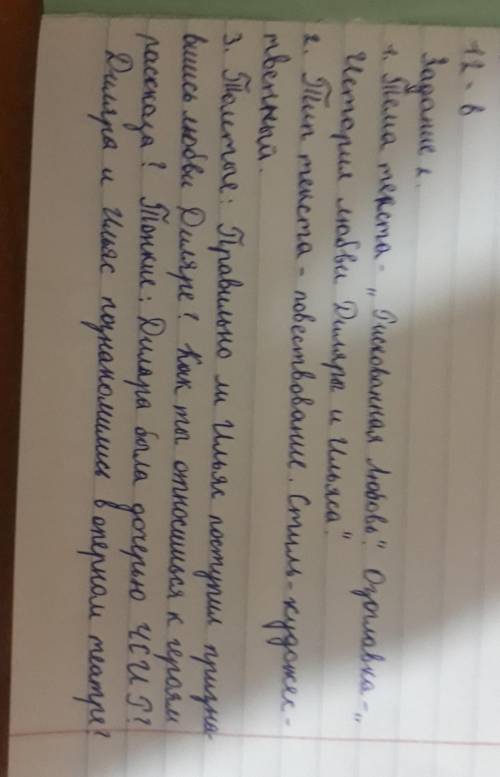 12 - в
Задание 1.
1. Тема текста - „Рискованная любовь". Озаглавка - „
История любви Диляры и Ильяса".
2. Тип текста - повествование. Стиль - художес-
твенный.
3. Толстые: Правильно ли Ильяс поступил призна-
вшись любви Диляре? Как ты относишься к героям
рассказа? Тонкие: Диляра была дочерью ЧСИР?
Диляра и Ильяс познакомились в оперном театре?